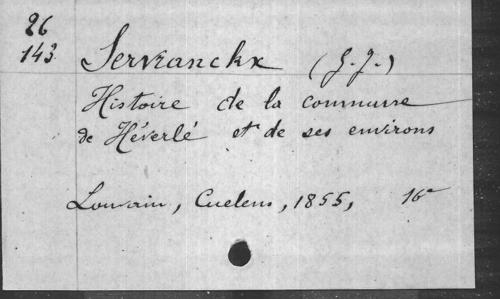 26
143.
Servranckx (G.J.)
Histoire de la commune
de Héverlé et de ses environs
Louvain, Cuelens, 1855, 16°